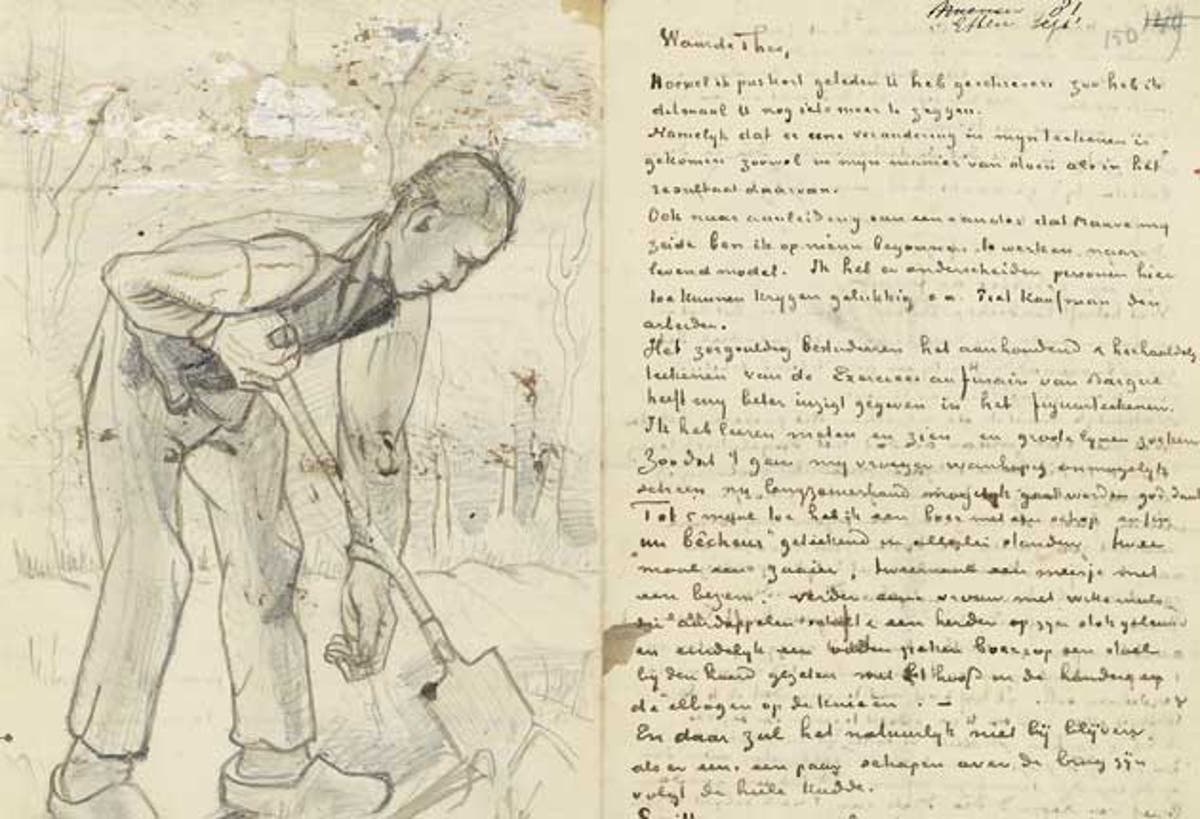 150
Waarde Theo,
Hoewel ik pas kort geleden U heb geschreven zoo heb ik
ditmaal U nog iets meer te zeggen.
Namelijk dat er eene verandering in mijn teekenen is
gekomen zoowel in mijn manier van doen als in het
resultaat daarvan.
Ook naar aanleiding van een en ander dat Mauve mij
zeide ben ik op nieuw begonnen te werken naar
levend model. Ik heb er onderscheiden personen hier
toe kunnen krijgen gelukkig o.a. Piet Kaufman den
arbeider.
Het zorgvuldig bestudeeren het aanhoudend & herhaaldelijk
teekenen van de Exercices au fusain van Bargue
heeft mij beter inzigt gegeven in het figuurteekenen.
Ik heb leeren meten en zien en groote lynen zoeken
Zoo dat 't geen mij vroeger wanhopig onmogelijk
scheen nu langzamerhand mogelijk gaat worden God dank
Tot 5 maal toe heb ik een boer met een schop enfin
„un bêcheur" geteekend in allerlei standen, twee
maal een zaaier, tweemaal een meisje met
een bezem. Verder eene vrouw met witte muts
die aardappelen schilt & een herder op zijn stok geleund
en eindelijk een ouden zieken boer op een stoel
bij den haard gezeten met het hoofd in de handen en
de ellebogen op de knieën. –
En daar zal het natuurlijk niet bij blijven,
als er een, een paar schapen over de brug zijn
volgt de heele kudde.